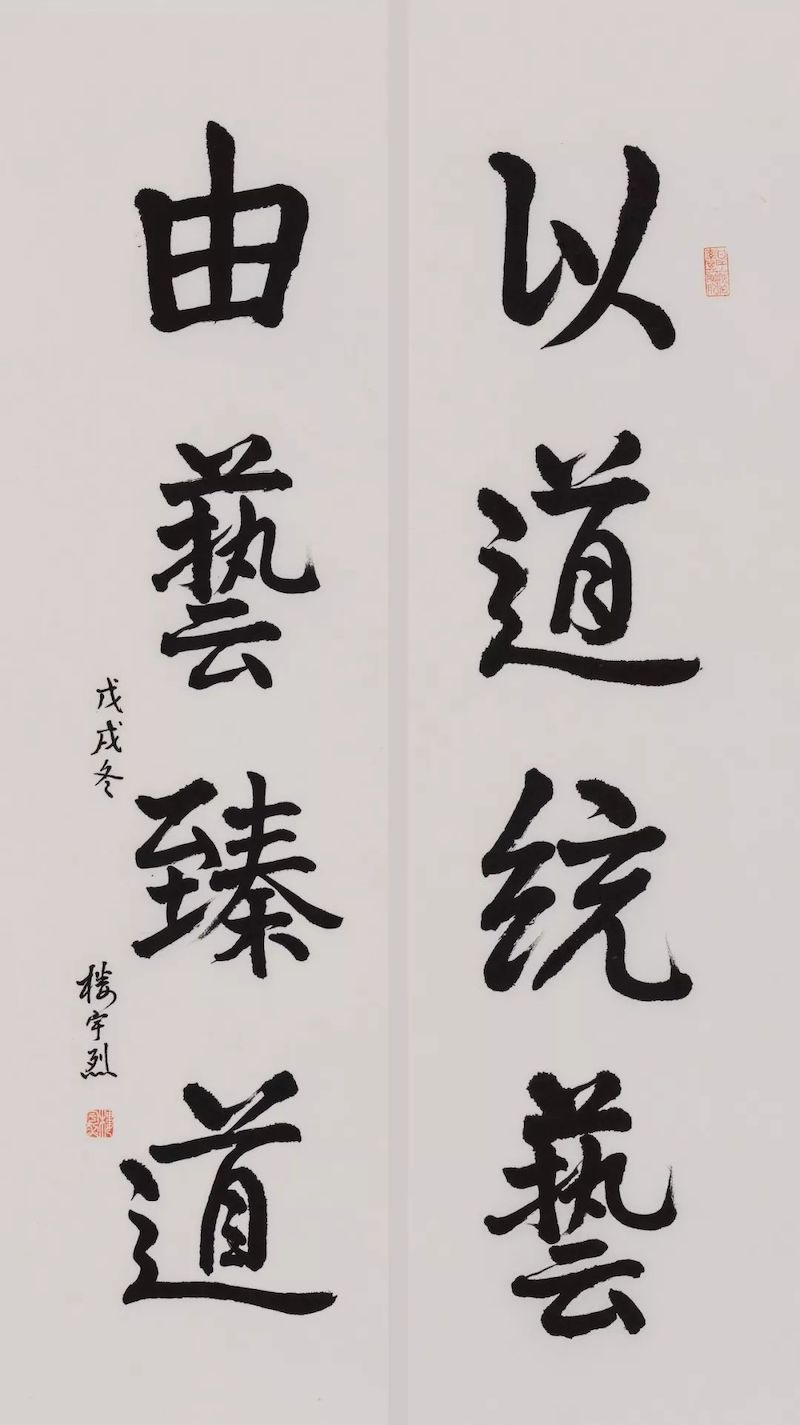 以道統藝
由藝臻道
戊戌冬
楼宇烈